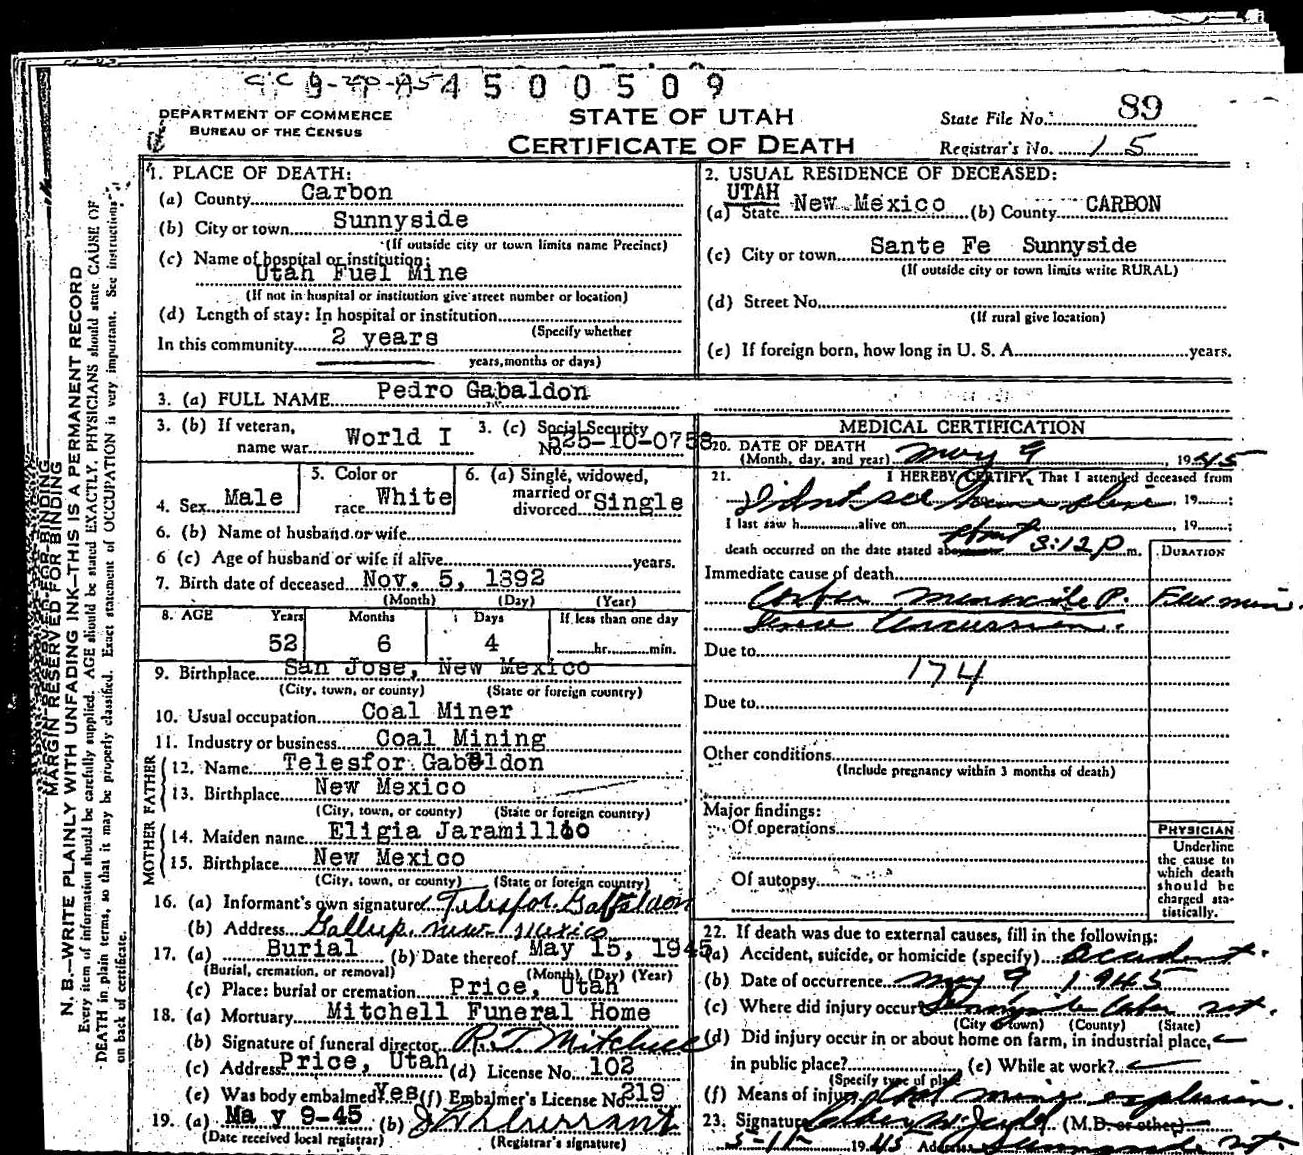 4500509
DEPARTMENT OF COMMERCE
BUREAU OF THE CENSUS
STATE OF UTAH
CERTIFICATE OF DEATH
State File No. 89
Registrar's No. 15
MARGIN RESERVED FOR BINDING
N. B.—WRITE PLAINLY WITH UNFADING INK—THIS IS A PERMANENT RECORD
Every item of information should be carefully supplied. AGE should be stated EXACTLY. PHYSICIANS should state CAUSE OF
DEATH in plain terms, so that it may be properly classified. Exact statement of OCCUPATION is very important. See instructions
on back of certificate.
1. PLACE OF DEATH:
(a) County Carbon
(b) City or town Sunnyside
(If outside city or town limits name Precinct)
(c) Name of hospital or institution:
Utah Fuel Mine
(If not in hospital or institution give street number or location)
(d) Length of stay: In hospital or institution
(Specify whether
In this community 2 years
years, months or days)
2. USUAL RESIDENCE OF DECEASED:
UTAH
(a) State New Mexico (b) County CARBON
(c) City or town Sante Fe Sunnyside
(If outside city or town limits write RURAL)
(d) Street No.
(If rural give location)
(e) If foreign born, how long in U. S. A. years.
3. (a) FULL NAME Pedro Gabaldon
3. (b) If veteran,
name war World I
3. (c) Social Security
No. 525-10-0758
4. Sex Male
5. Color or
race White
6. (a) Single, widowed,
married or
divorced Single
6. (b) Name of husband or wife
6 (c) Age of husband or wife if alive years.
7. Birth date of deceased Nov. 5, 1892
(Month) (Day) (Year)
8. AGE Years Months Days If less than one day
52 6 4 hr. min.
9. Birthplace San Jose, New Mexico
(City, town, or county) (State or foreign country)
10. Usual occupation Coal Miner
11. Industry or business Coal Mining
FATHER
12. Name Telesfor Gabaldon
13. Birthplace New Mexico
(City, town, or county) (State or foreign country)
MOTHER
14. Maiden name Eligia Jaramillo
15. Birthplace New Mexico
(City, town, or county) (State or foreign country)
16. (a) Informant's own signature Telesfor Gabaldon
(b) Address Gallup, New Mexico
17. (a) Burial (b) Date thereof May 15, 1945
(Burial, cremation, or removal) (Month) (Day) (Year)
(c) Place: burial or cremation Price, Utah
18. (a) Mortuary Mitchell Funeral Home
(b) Signature of funeral director R.T. Mitchell
(c) Address Price, Utah (d) License No. 102
(e) Was body embalmed? Yes (f) Embalmer's License No. 219
19. (a) May 9-45 (b)
(Date received local registrar) (Registrar's signature)
MEDICAL CERTIFICATION
20. DATE OF DEATH
(Month, day, and year) May 9, 1945
21. I HEREBY CERTIFY, That I attended deceased from
Didnt see him alive, 19
I last saw h alive on, 19
death occurred on the date stated above 3:12 P m.
DURATION
Immediate cause of death
Carbon Monoxide P. Few min.
Due to
174
Due to
Other conditions
(Include pregnancy within 3 months of death)
Major findings:
Of operations
Of autopsy
PHYSICIAN
Underline
the cause to
which death
should be
charged sta-
tistically.
22. If death was due to external causes, fill in the following:
(a) Accident, suicide, or homicide (specify) Accident.
(b) Date of occurrence May 9 1945
(c) Where did injury occur? Sunnyside Carbon Ut.
(City or town) (County) (State)
(d) Did injury occur in or about home on farm, in industrial place,
in public place? (e) While at work?
(Specify type of place)
(f) Means of injury mine explosion.
23. Signature (M.D. or other)
5-11- 1945 Address Sunnyside Ut.